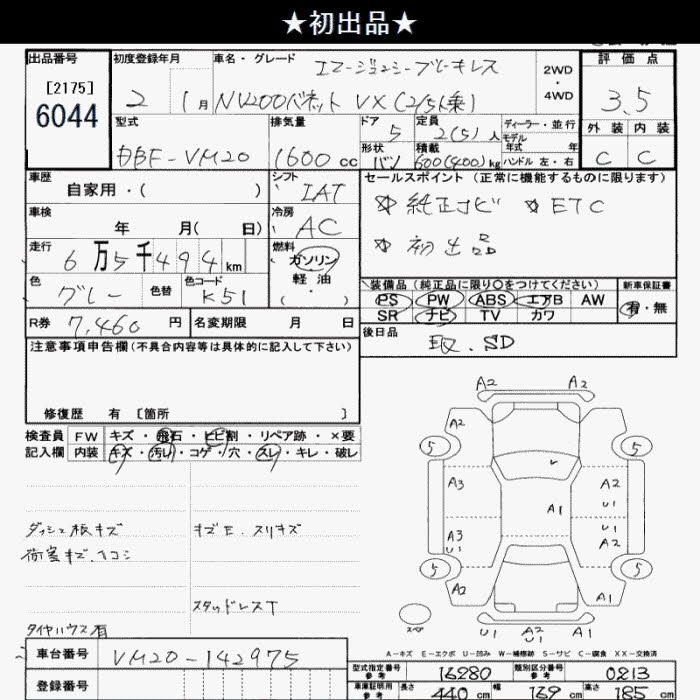 ★初出品★
出品番号
[2175]
6044
初度登録年月
2 1月
車名・グレード
エマージェンシーブレーキレス
NV200バネット VX (2/5人乗)
2WD
・
4WD
評価点
3.5
外装 内装
C C
型式
DBF-VM20
排気量
1600 cc
ドア
5
形状
バン
定員
2(5) 人
積載
600(400)kg
ディーラー・並行
モデル
年式 年
ハンドル 左・右
車歴
自家用・( )
シフト
IAT
セールスポイント (正常に機能するものに限ります)
☆ 純正ナビ ☆ ETC
☆ 初出品
車検
年 月( 日)
冷房
AC
走行
6万5千494km
燃料
ガソリン
軽油
( ・ )
色
グレー
色替
色コード
K51
装備品 (純正品に限り○をつけてください)
PS PW ABS エアB AW
SR ナビ TV カワ
新車保証書
有・無
R券 7,460 円
名変期限 月 日
後日品
取.SD
注意事項申告欄(不具合内容等は具体的に記入して下さい)
修復歴 有 [箇所 ]
検査員 FW キズ・飛石・ヒビ割・リペア跡・×要
記入欄 内装 キズ・汚れ・コゲ・穴・スレ・キレ・破レ
ダッシュ板キズ
荷室キズ.ヘコミ
キズE.スリキズ
スタッドレスT
タイヤハウス有
A2 A2
A2 A1
5 5
A3 A2
U1
A1
A3 U1
U1 A2
5 5
A2 A1
スペア
U1 A2 U1
A1
A-キズ E-エクボ U-凹み W-補修跡 S-サビ C-腐食 XX-交換済
車台番号 VM20-142975
登録番号
型式指定番号
参考
16280
類別区分番号
参考
0213
車庫証明用
参考
長さ 440 cm 幅 169 cm 高さ 185 cm